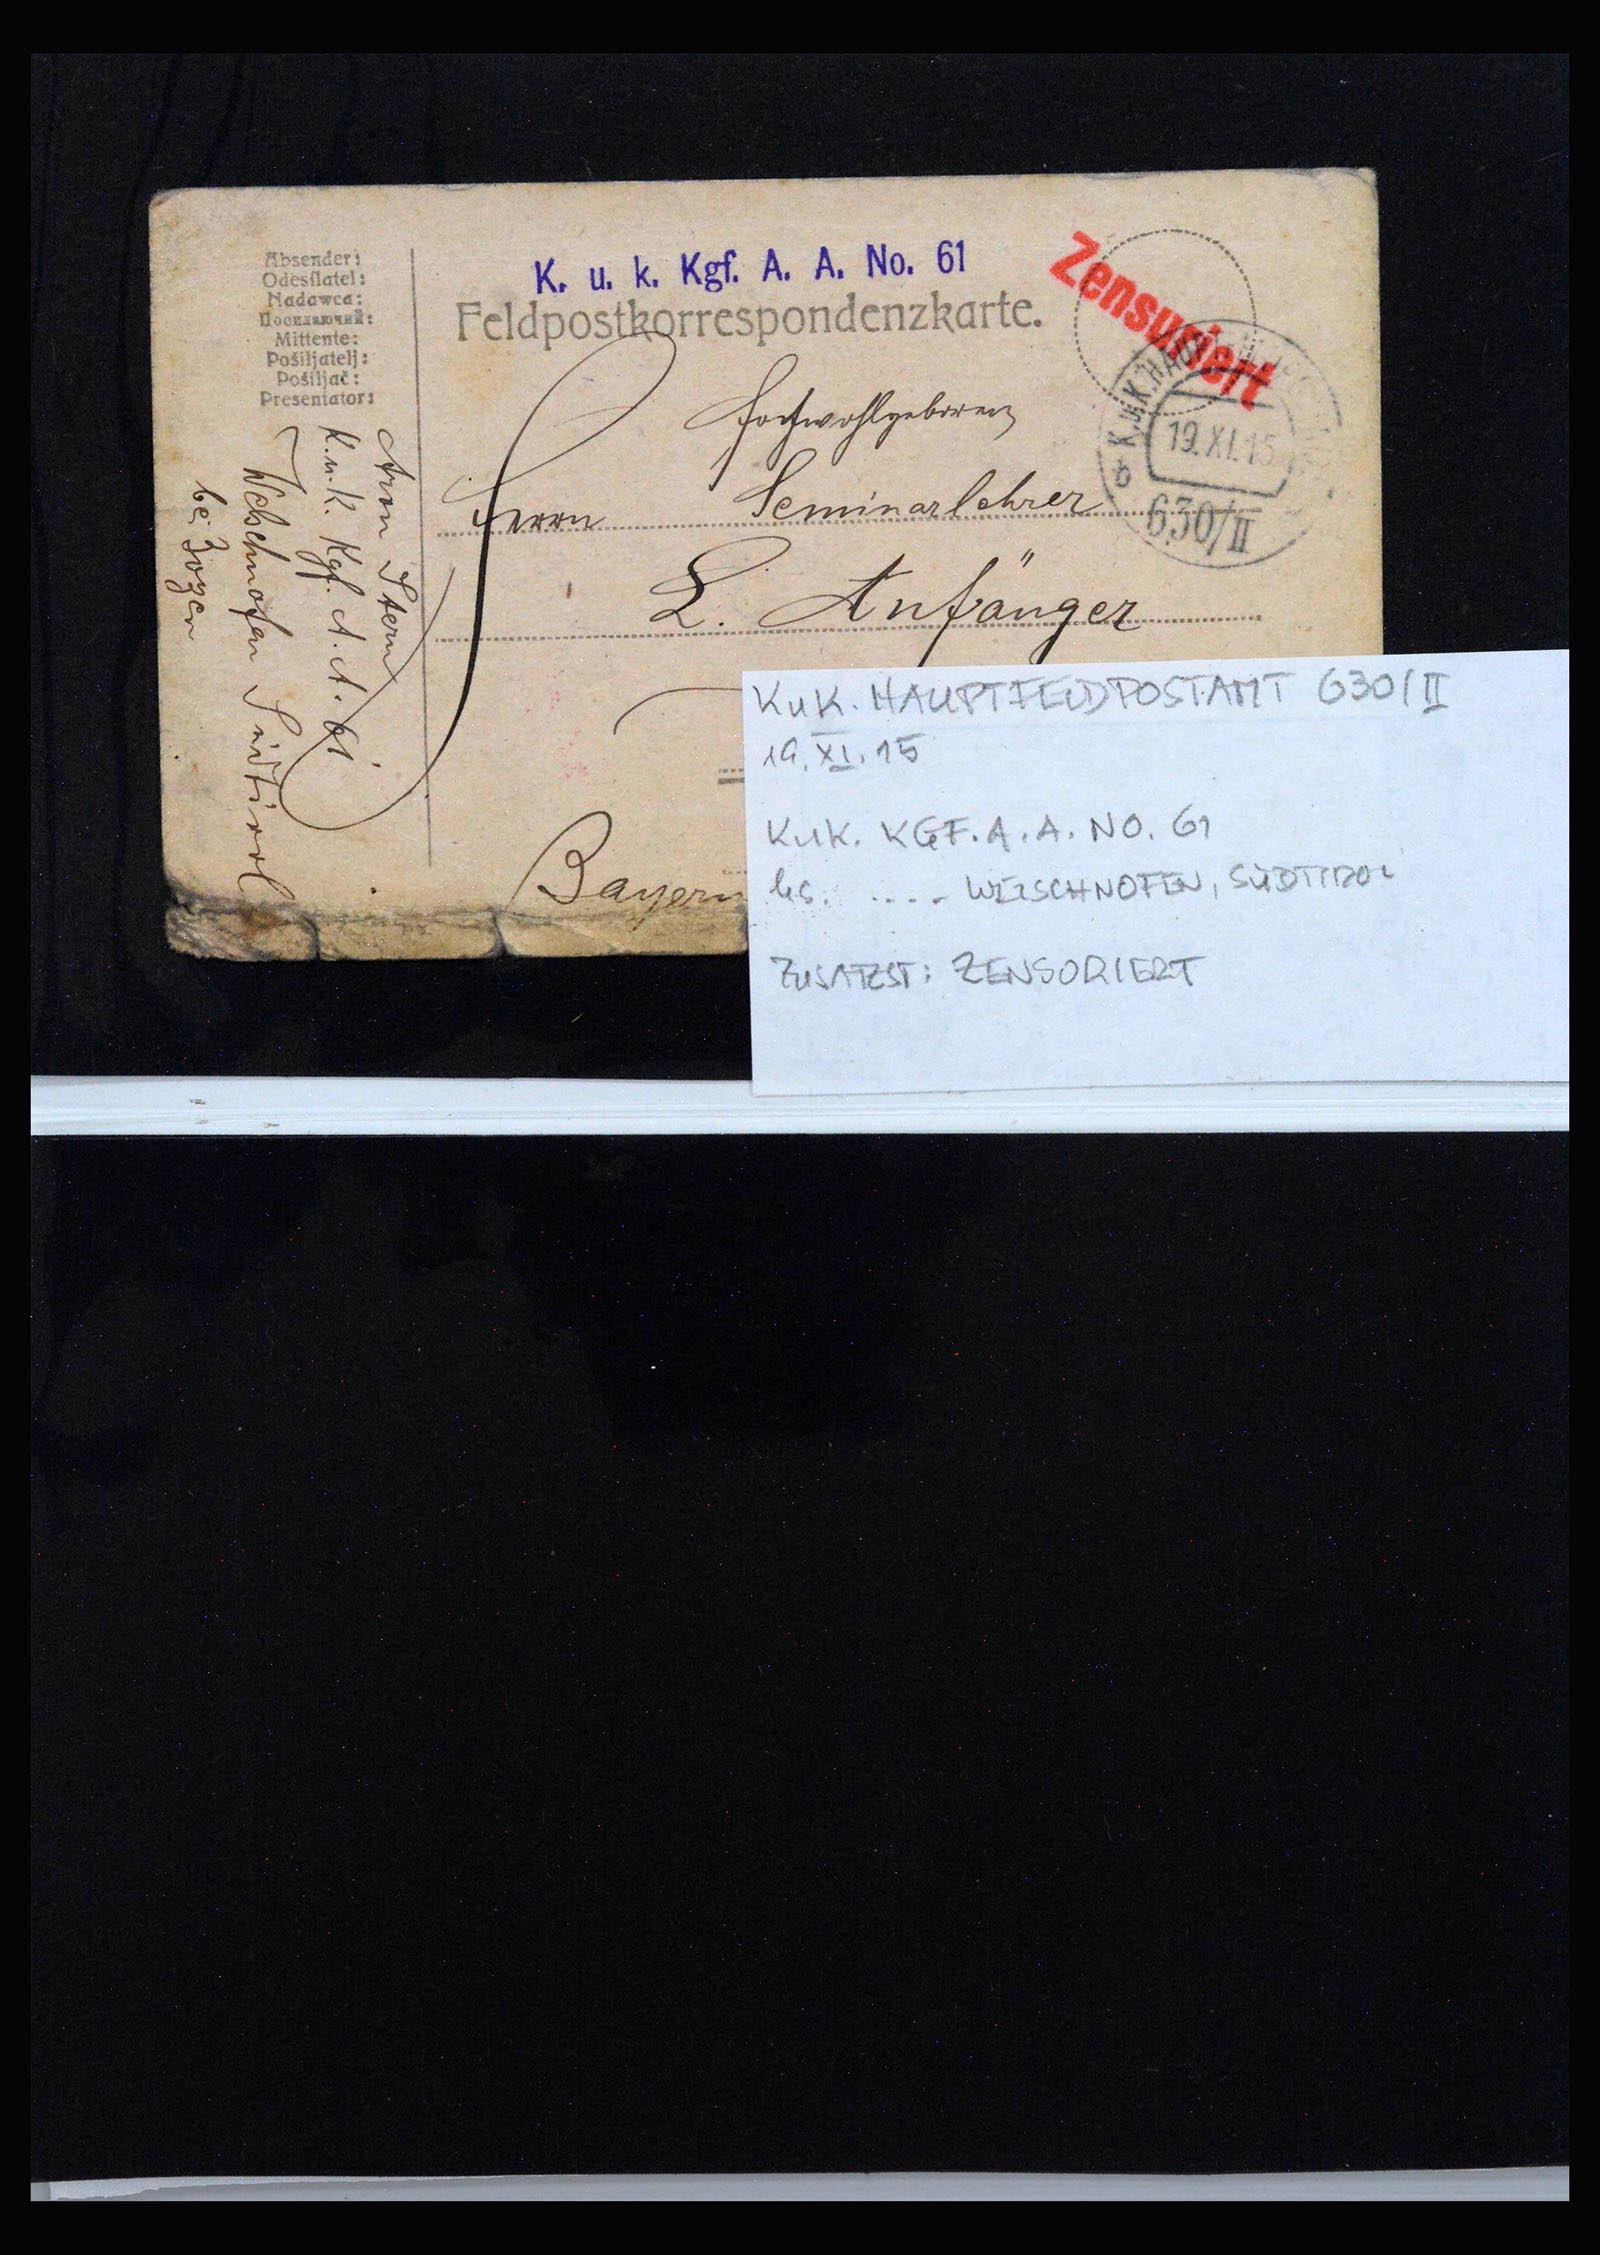 Absender:
Odesílatel:
Nadawca:
Посилаючий:
Mittente:
Pošiljatelj:
Pošiljač:
Presentator:
K. u. k. Kgf. A. A. No. 61
Feldpostkorrespondenzkarte.
Zensuriert
K.u.K. HAUPT
19.XI.15
b
630/II
Hochwohlgeboren
Herrn Seminarlehrer
L. Anfänger
Bayern
Aron Stern
K.u.K. Kgf. A. A. 61
Welschnofen Südtirol
bei Bozen
KuK. HAUPTFELDPOSTAMT 630/II
19. XI. 15
KuK. KGF. A. A. NO. 61
hs. .... WELSCHNOFEN, SÜDTIROL
ZUSATZST: ZENSORIERT